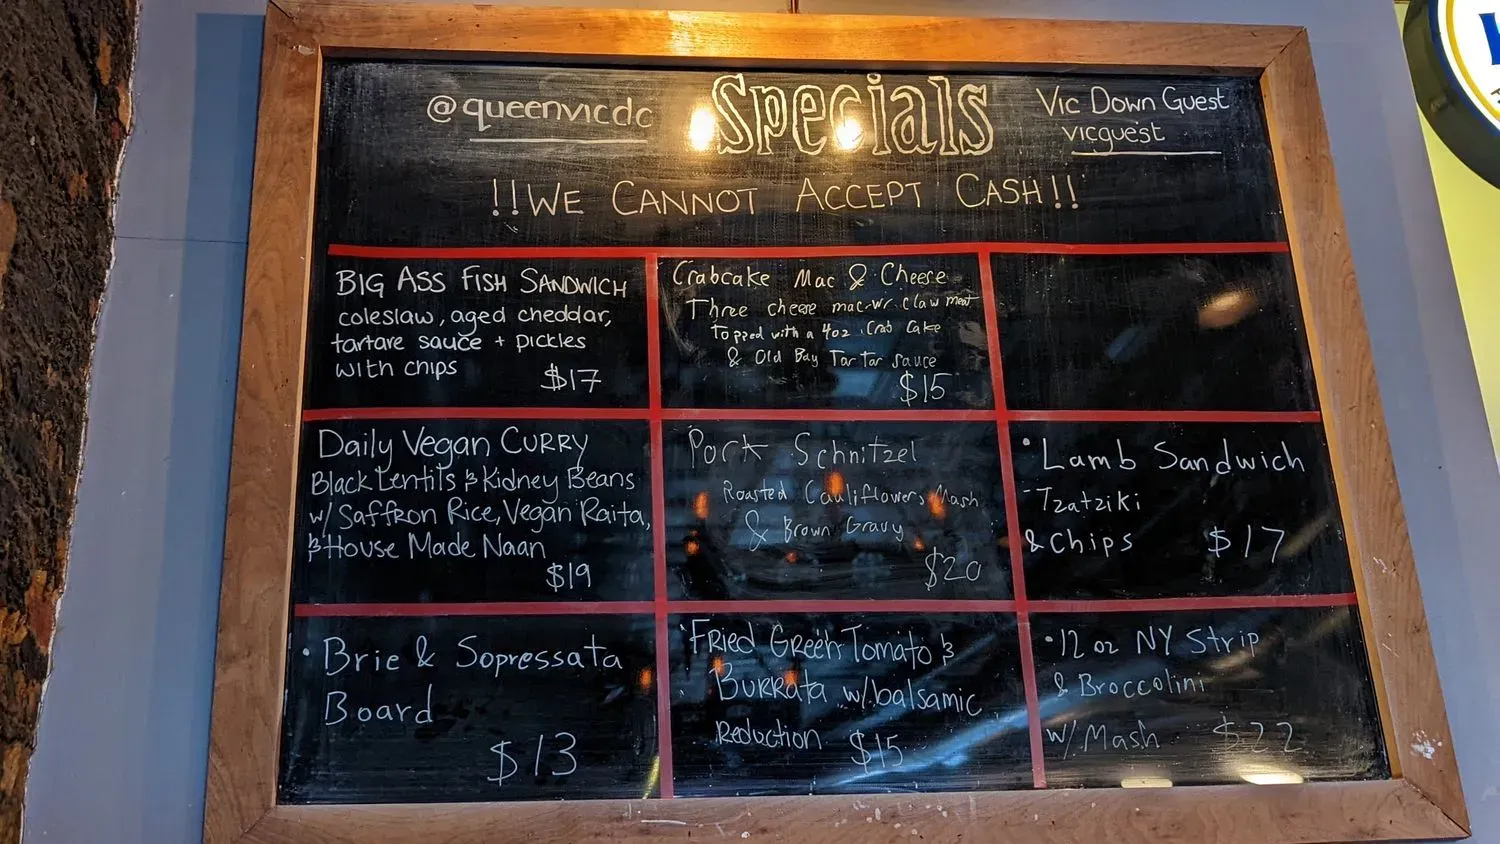 @queenvicdc
Specials
Vic Down Guest
vicguest
!!WE CANNOT ACCEPT CASH!!
BIG ASS FISH SANDWICH
coleslaw, aged cheddar,
tartare sauce + pickles
with chips
$17
Crabcake Mac & Cheese
Three cheese mac w/ claw meat
Topped with a 4oz Crab Cake
& Old Bay Tar Tar sauce
$15
Daily Vegan CURRY
Black Lentils & Kidney Beans
w/ Saffron Rice, Vegan Raita,
& House Made Naan
$19
Pork Schnitzel
Roasted Cauliflower, Mash
& Brown Gravy
$20
• Lamb Sandwich
- Tzatziki
& Chips $17
• Brie & Sopressata
Board
$13
• Fried Green Tomato &
Burrata w/ balsamic
Reduction $15
• 12 oz NY Strip
& Broccolini
w/ Mash $22